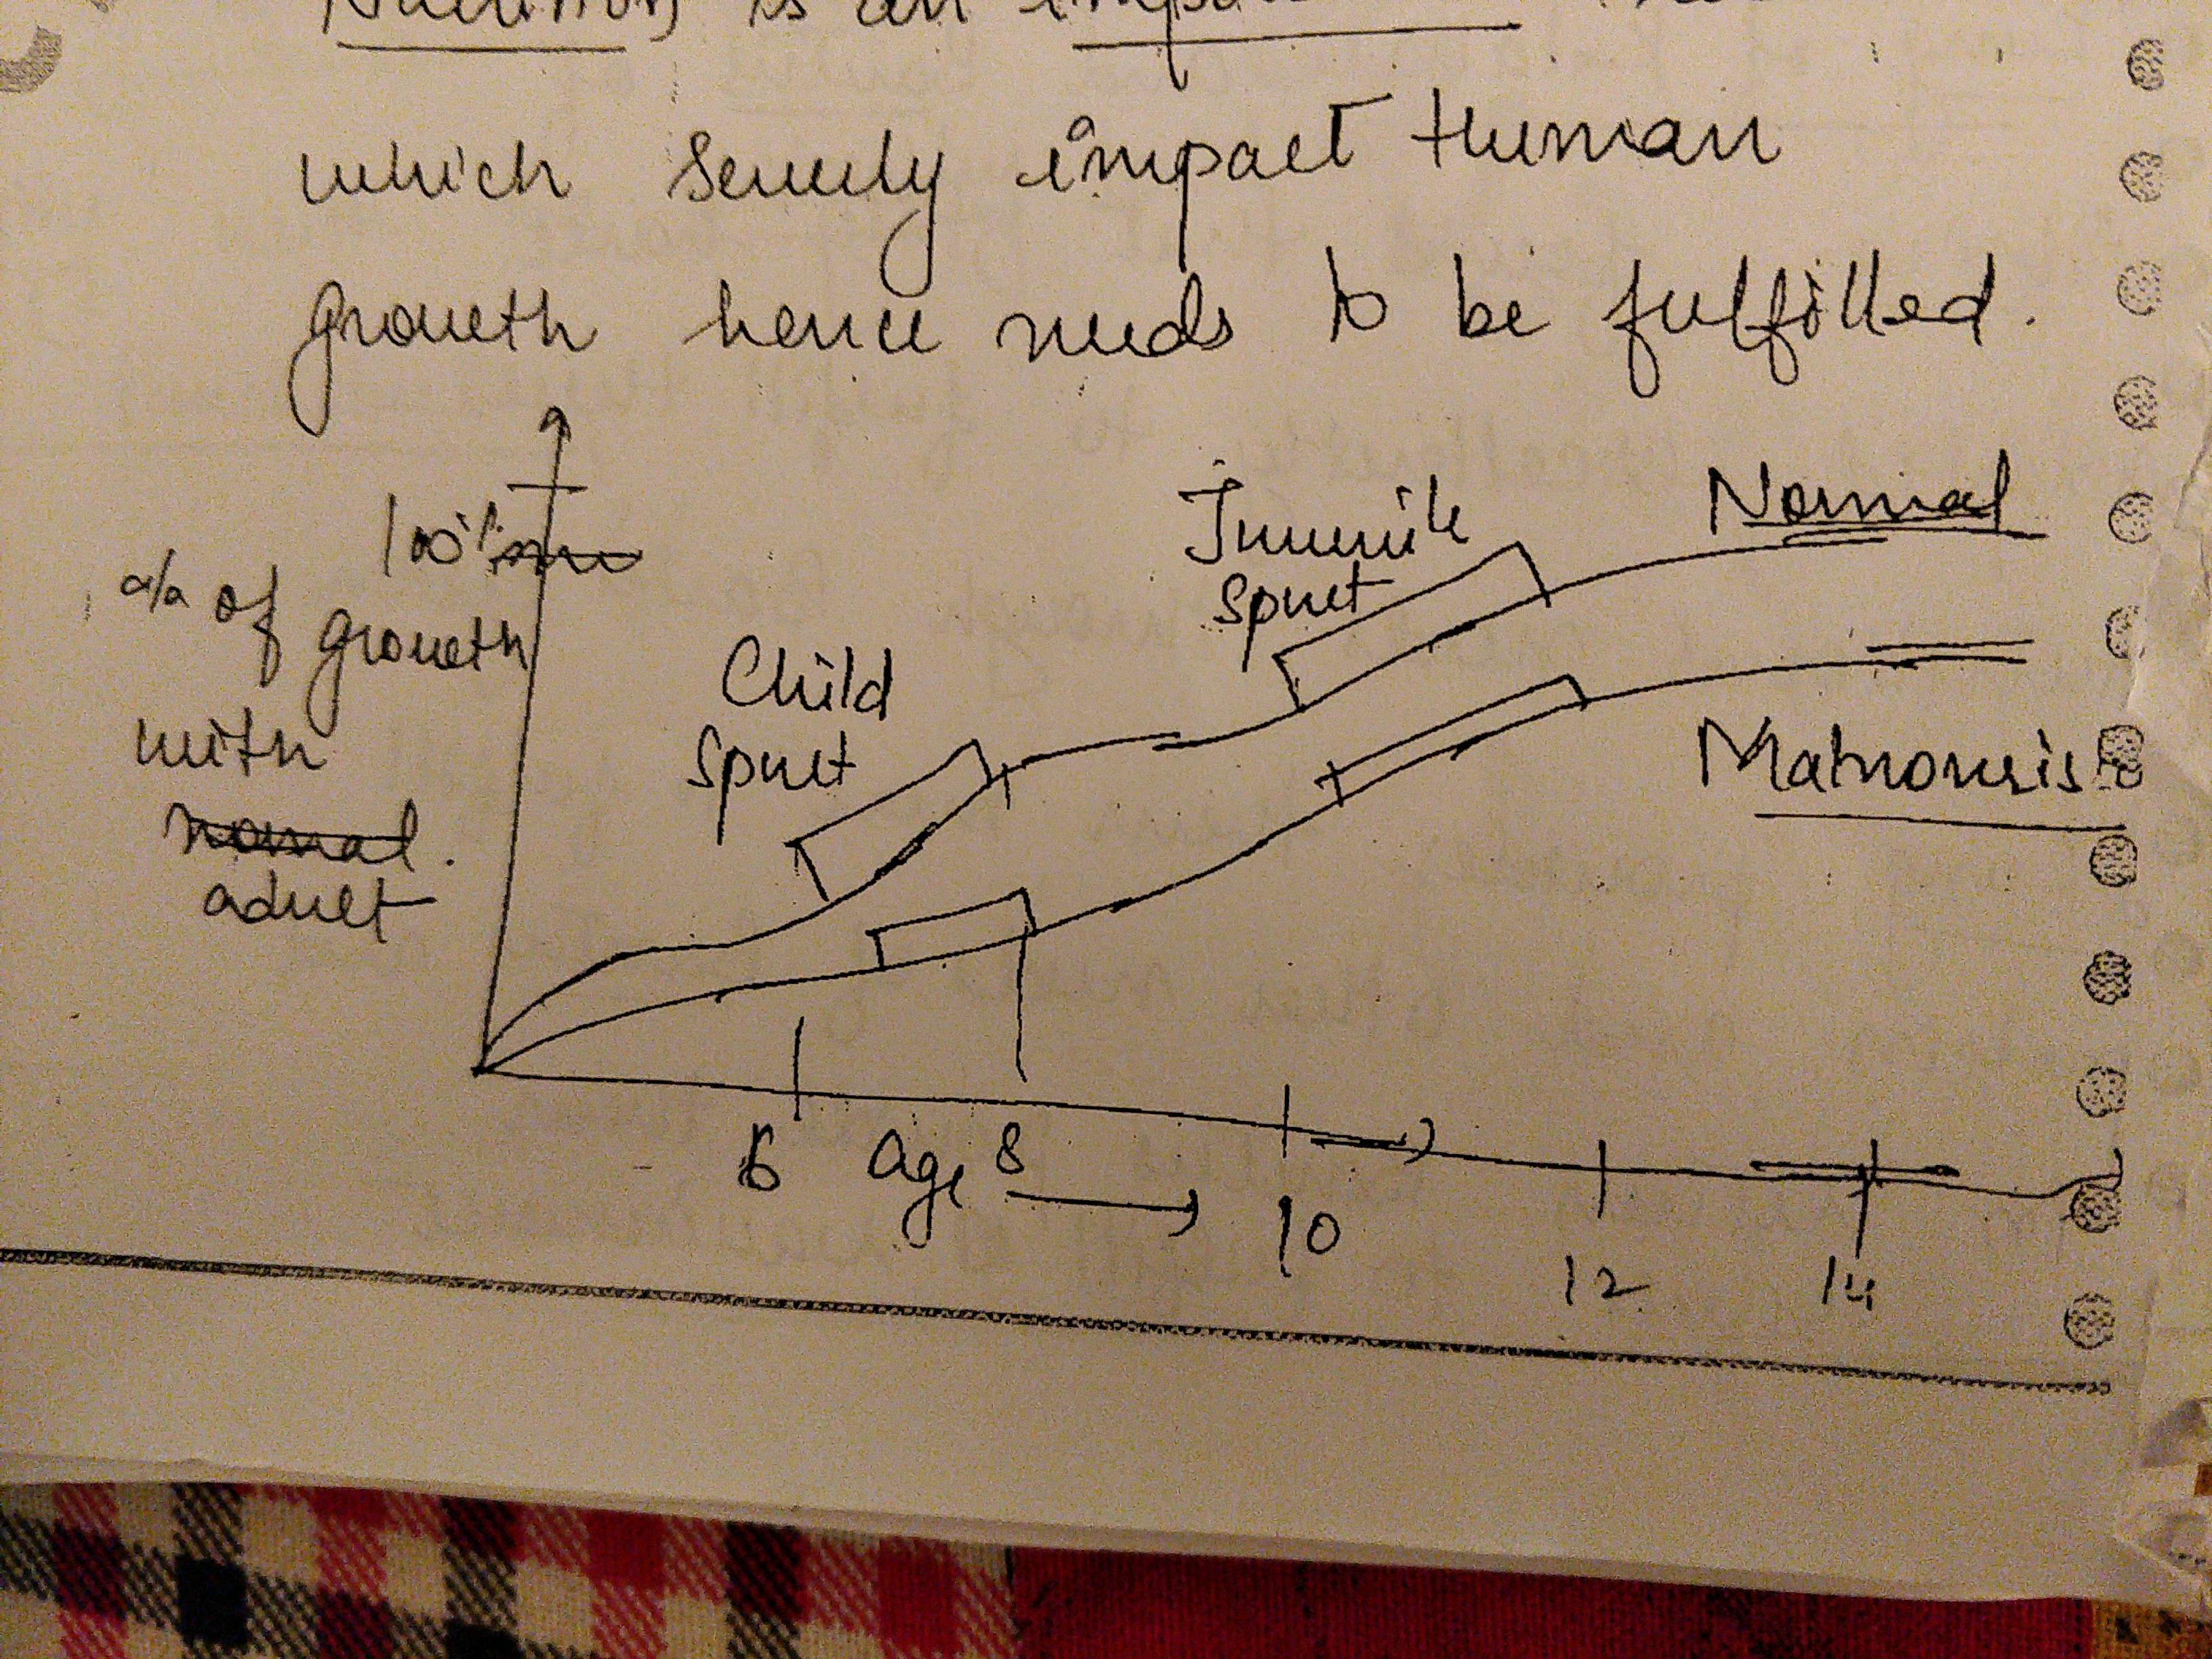 is an
which severly impact Human
growth hence needs to be fulfilled.
100%
% of growth
with
normal.
adult
Child
Spurt
Juvenile
Spurt
Normal
Malnourish
6 Age 8
10
12
14